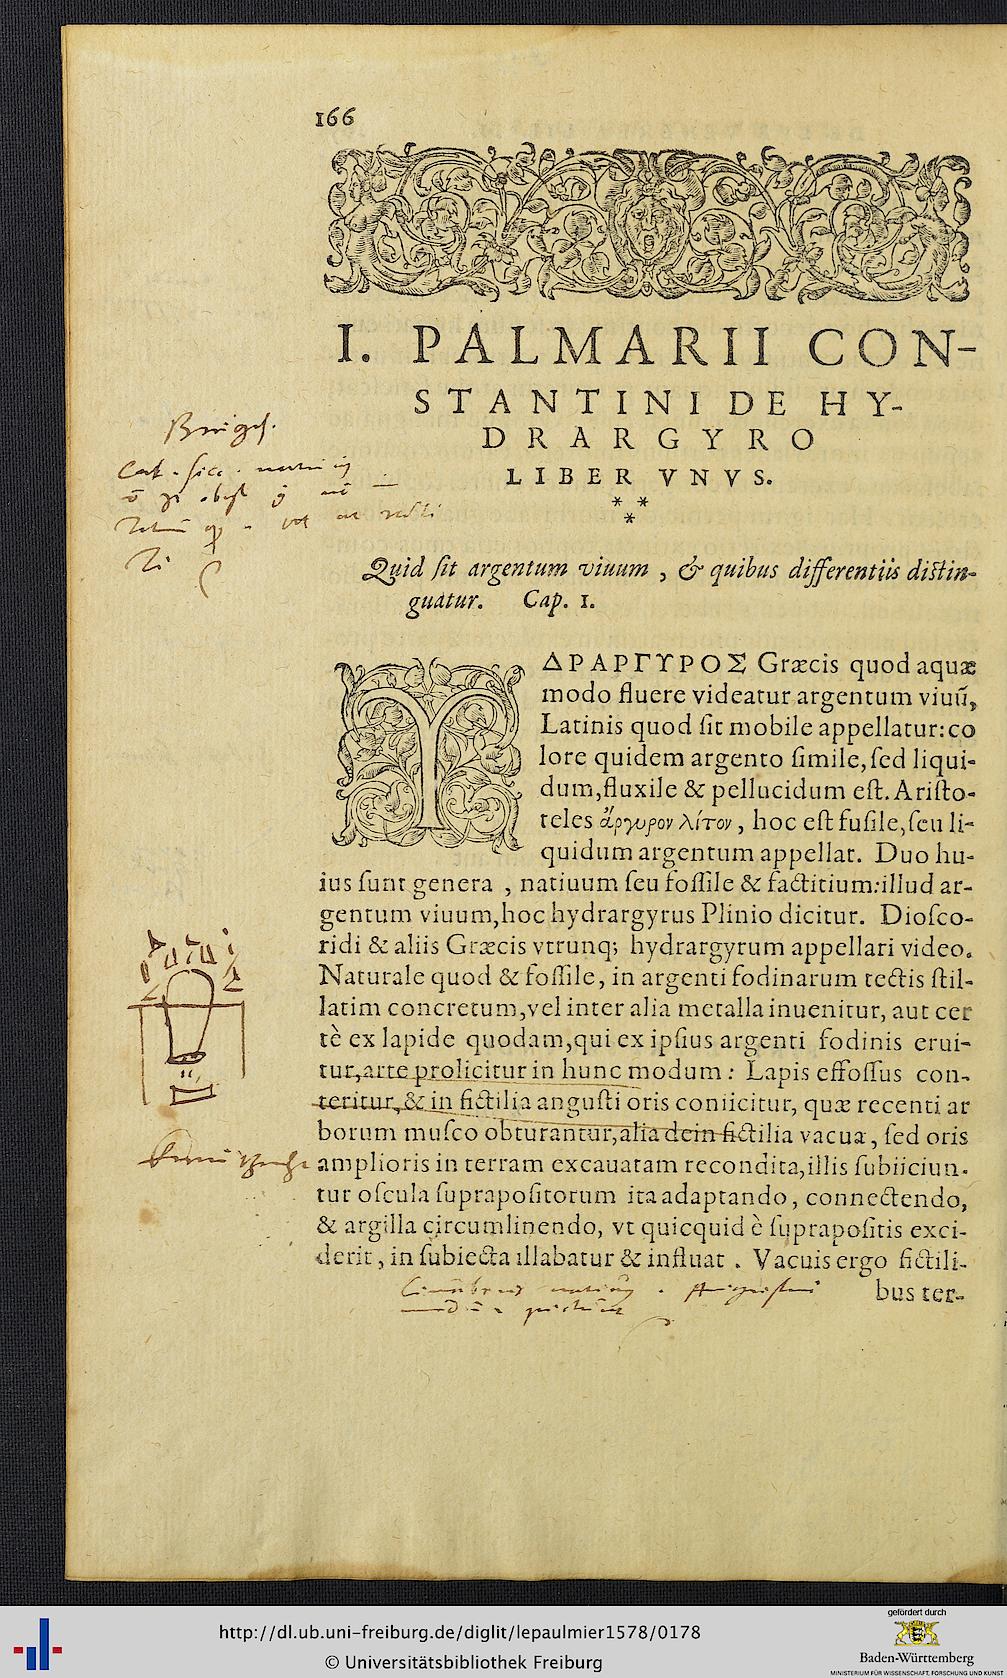 166
I. PALMARII CON-
STANTINI DE HY-
DRARGYRO
LIBER VNVS.
* *
*
Quid ſit argentum viuum , & quibus differentiis diſtin-
guatur. Cap. 1.
ΥΔΡΑΡΓΥΡΟΣ Græcis quod aquæ
modo fluere videatur argentum viuū,
Latinis quod ſit mobile appellatur: co
lore quidem argento ſimile, ſed liqui-
dum, fluxile & pellucidum eſt. Ariſto-
teles ἄργυρον λίτον, hoc eſt fuſile, ſeu li-
quidum argentum appellat. Duo hu-
ius ſunt genera , natiuum ſeu foſſile & factitium: illud ar-
gentum viuum, hoc hydrargyrus Plinio dicitur. Dioſco-
ridi & aliis Græcis vtrunq; hydrargyrum appellari video.
Naturale quod & foſſile, in argenti fodinarum tectis ſtil-
latim concretum, vel inter alia metalla inuenitur, aut cer
tè ex lapide quodam, qui ex ipſius argenti fodinis erui-
tur, arte prolicitur in hunc modum : Lapis effoſſus con-
teritur, & in fictilia anguſti oris coniicitur, quæ recenti ar
borum muſco obturantur, alia dein fictilia vacua, ſed oris
amplioris in terram excauatam recondita, illis ſubiiciun-
tur oſcula ſuprapoſitorum ita adaptando, connectendo,
& argilla circumlinendo, vt quicquid è ſuprapoſitis exci-
derit, in ſubiecta illabatur & influat . Vacuis ergo fictili-
bus ter-
http://dl.ub.uni-freiburg.de/diglit/lepaulmier1578/0178
© Universitätsbibliothek Freiburg
gefördert durch
Baden-Württemberg
MINISTERIUM FÜR WISSENSCHAFT, FORSCHUNG UND KUNST